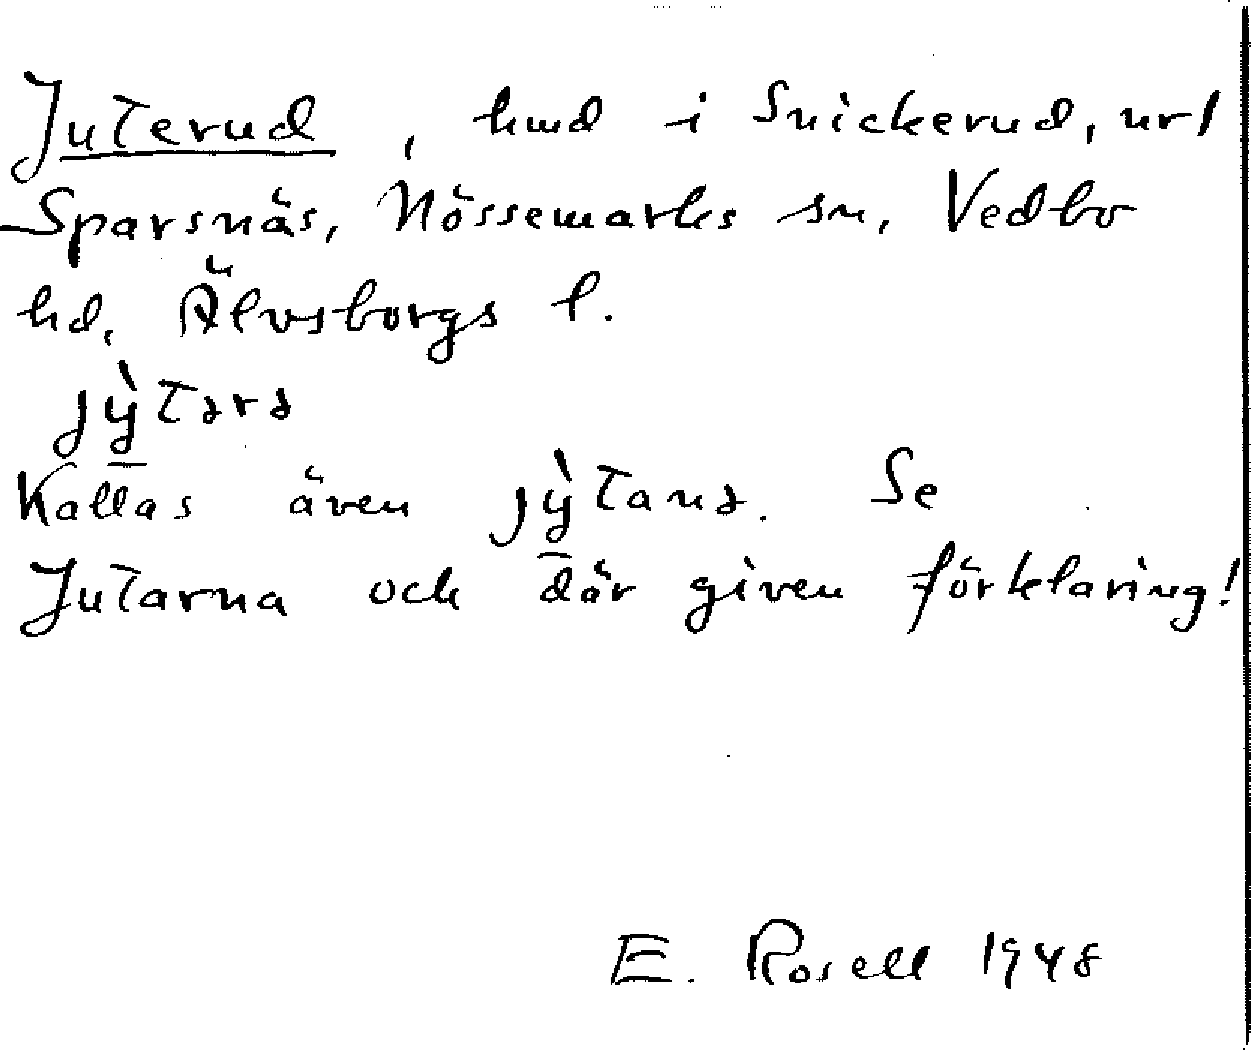 Juterud, hmd i Snickerud, url
Sparsnäs, Nössemarks sn, Vedbo
hd, Älvsborgs l.
jỳ̱tərə
Kallas även jỳ̱tanə. Se
Jutarna och där given förklaring!
E. Rosell 1948